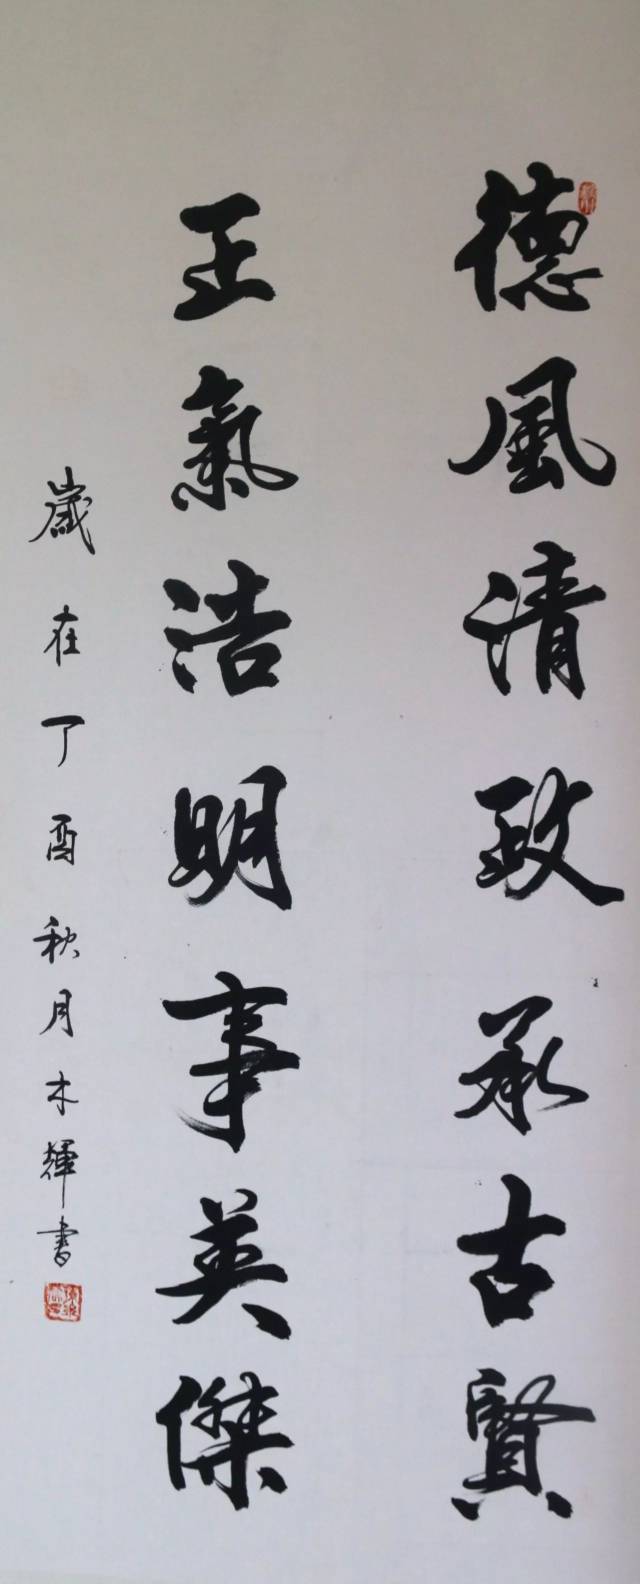 德風清政承古賢
正氣浩明事英傑
歲在丁酉秋月木輝書